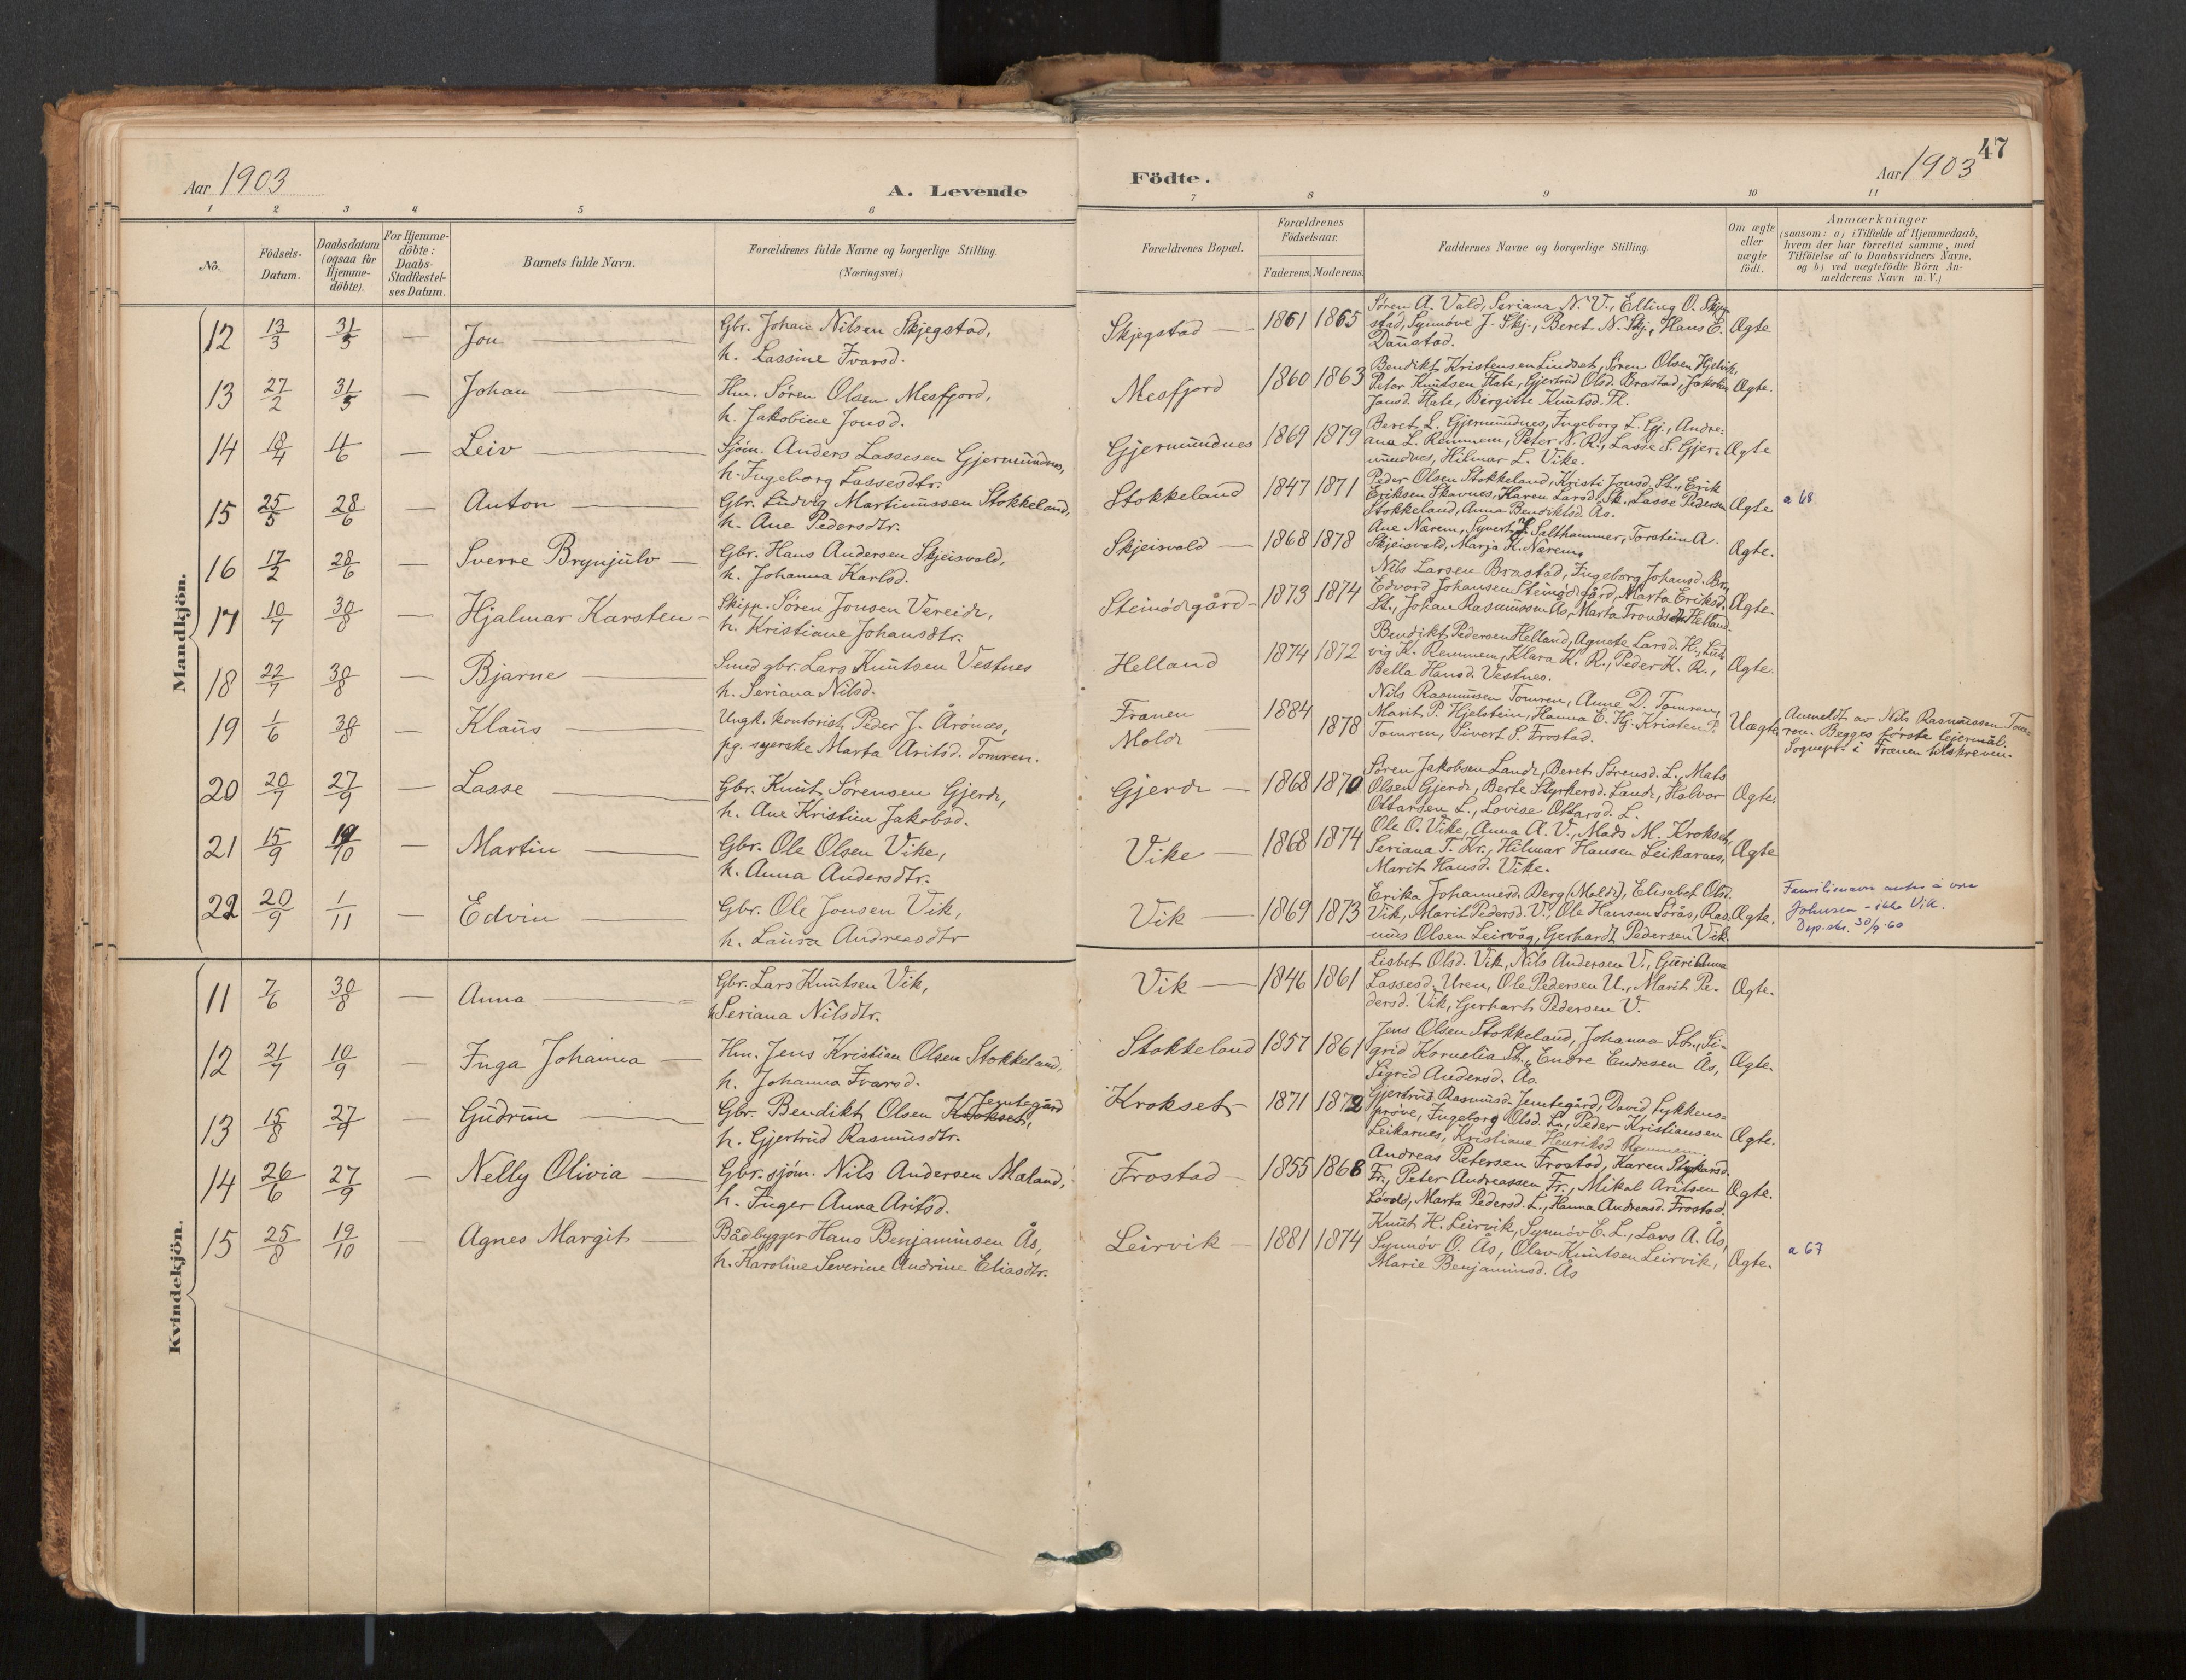 47
Aar 1903
A. Levende
Födte.
Aar 1903
1 2 3 4 5 6 7 8 9 10 11
No.
Födsels-
Datum.
Daabsdatum
(ogsaa for
Hjemme-
döbte).
For Hjemme-
döbte:
Daabs-
Stadfæstel-
ses Datum.
Barnets fulde Navn.
Forældrenes fulde Navne og borgerlige Stilling.
(Næringsvei.)
Forældrenes Bopæl.
Forældrenes
Födselsaar.
Faderens. Moderens.
Faddernes Navne og borgerlige Stilling.
Om ægte
eller
uægte
födt.
Anmærkninger
(saasom: a) i Tilfælde af Hjemmedaab,
hvem der har forrettet samme, med
Tilföielse af to Daabsvidners Navne,
og b) ved uægtefödte Börn An-
melderens Navn m. V.)
Mandkjön.
12 13/3 31/5 — Jon —
Gbr. Johan Nilsen Skjegstad,
h. Lassine Ivarsd.
Skjegstad — 1861 1865
Søren A. Vald, Seriana N. V., Elling O. Skjeg-
stad, Synnöve J. Skj., Beret N. Skj., Hans E.
Danstad.
Ægte
13 27/2 31/5 — Johan —
Hm. Søren Olsen Mesfjord,
h. Jakobine Jonsd.
Mesfjord 1860 1863
Bendikt Kristensen Lindset, Søren Olsen Hjelvik,
Peter Knutsen Flate, Gjertrud Olsd. Brastad, Jakobin
Jonsd. Flate, Birgitte Knutsd. Fl.
Ægte.
14 18/4 11/6 — Leiv —
Sjöm. Anders Lassesen Gjermundnes,
h. Ingeborg Lassesdtr.
Gjermundnes 1869 1879
Beret L. Gjermundnes, Ingeborg L. Gj., Andre-
ana L. Remmem, Peter N. R., Lasse S. Gjer-
mundnes, Hilmar L. Vike.
Ægte
15 25/5 28/6 — Anton —
Gbr. Ludvig Martinussen Stokkeland,
h. Ane Pedersdtr.
Stokkeland 1847 1871
Peder Olsen Stokkeland, Kristi Jonsd. St., Erik
Eriksen Skavnes, Karen Larsd. Sk., Lasse Pedersen
Stokkeland, Anna Bendiktsd. Ås.
Ægte
a 68
16 17/2 28/6 — Sverre Brynjulv —
Gbr. Hans Andersen Skjeisvold,
h. Johanna Karlsd.
Skjeisvold — 1868 1878
Ane Nærem, Syvert J. Salthammer, Torstein A.
Skjeisvold, Marja K. Nærem.
Ægte.
17 10/7 30/8 — Hjalmar Karsten —
Skipp. Søren Jonsen Vereide,
h. Kristiane Johansdtr.
Steinödegård — 1873 1874
Nils Larsen Brastad, Ingeborg Johansd. Br.,
Edvard Johansen Steinödegård, Marta Eriksd.
St., Johan Rasmussen Ås, Marta Trondsdtr Helland.
Ægte.
18 22/7 30/8 — Bjarne —
Smed gbr. Lars Knutsen Vestnes
h. Seriana Nilsd.
Helland 1874 1872
Bendikt Pedersen Helland, Agnete Larsd. H., Lud-
vig K. Remmem, Klara K. R., Peder K. R.,
Bella Hansd. Vestnes.
Ægte.
19 1/6 30/8 — Klaus —
Ungk. kontorist Peder J. Årönes,
pg. syerske Marta Aritsd. Tomren.
Frænen
Molde — 1884
1878
Nils Rasmussen Tomren, Anne D. Tomren,
Marit P. Hjelstein, Hanna E. Hj. Kristen P.
Tomren, Sivert S. Frostad.
Uægte
Anmeldt av Nils Rasmussen Tom-
ren. Begges förste leiermål.
Sognepr. i Frænen tilskreven.
20 20/7 27/9 — Lasse —
Gbr. Knut Sörensen Gjerde,
h. Ane Kristine Jakobsd.
Gjerde — 1868 1870
Søren Jakobsen Lande, Beret Sørensd. L., Mats
Olsen Gjerde, Berte Styrkersd. Lande, Halvor
Ottarsen L., Lovise Ottarsd. L.
Ægte.
21 15/9 19/10 — Martin —
Gbr. Ole Olsen Vike,
h. Anna Andersdtr.
Vike — 1868 1874
Ole O. Vike, Anna A. V., Mads M. Krokset,
Seriana T. Kr., Hilmar Hansen Leikarnes,
Marit Hansd. Vike.
Ægte
22 20/9 1/11 — Edvin —
Gbr. Ole Jonsen Vik,
h. Laura Andreasdtr
Vik — 1869 1873
Erika Johannesd. Berg (Molde), Elisabet Olsd.
Vik, Marit Pedersd. V., Ole Hansen Sörås, Ras-
mus Olsen Leirvåg, Gerhardt Pedersen Vik.
Ægte.
Familienavn antas å være
Johnsen - ikke Vik.
Dep. skr. 30/9-60
Kvindekjön.
11 7/6 30/8 — Anna —
Gbr. Lars Knutsen Vik,
h. Seriana Nilsdtr.
Vik — 1846 1861
Lisbet Olsd. Vik, Nils Andersen V., Guri Anna
Lassesd. Uren, Ole Pedersen U., Marit Pe-
dersd. Vik, Gerhart Pedersen V.
Ægte.
12 21/7 10/9 — Inga Johanna —
Hm. Jens Kristian Olsen Stokkeland,
h. Johanna Ivarsd.
Stokkeland 1857 1861
Jens Olsen Stokkeland, Johanna St., Si-
grid Kornelia St., Endre Endresen Ås,
Sigrid Andersd. Ås.
Ægte.
13 15/8 27/9 — Gudrun —
Gbr. Bendikt Olsen Krokset, Jemtegård
h. Gjertrud Rasmusdtr.
Krokset 1871 1872
Gjertrud Rasmusd. Jemtegård, David Lykkens-
pröve, Ingeborg Olsd. L., Peder Kristiansen
Leikarnes, Kristiane Henriksd. Remmem.
Ægte.
14 26/6 27/9 — Nelly Olivia —
Gbr. sjöm. Nils Andersen Maland,
h. Inger Anna Aritsd.
Frostad — 1855 1868
Andreas Petersen Frostad, Karen Styrkarsd.
Fr., Peter Andreassen Fr., Mikal Aritsen
Lövold, Marta Pedersd. L., Hanna Andreasd. Frostad.
Ægte.
15 25/8 19/10 — Agnes Margit —
Bådbygger Hans Benjaminsen Ås,
h. Karoline Severine Andrine Eliasdtr.
Leirvik — 1881 1874
Knut H. Leirvik, Synnöv E. L., Lars A. Ås,
Synnöv O. Ås, Olav Knutsen Leirvik,
Marie Benjaminsd. Ås
Ægte.
a 67